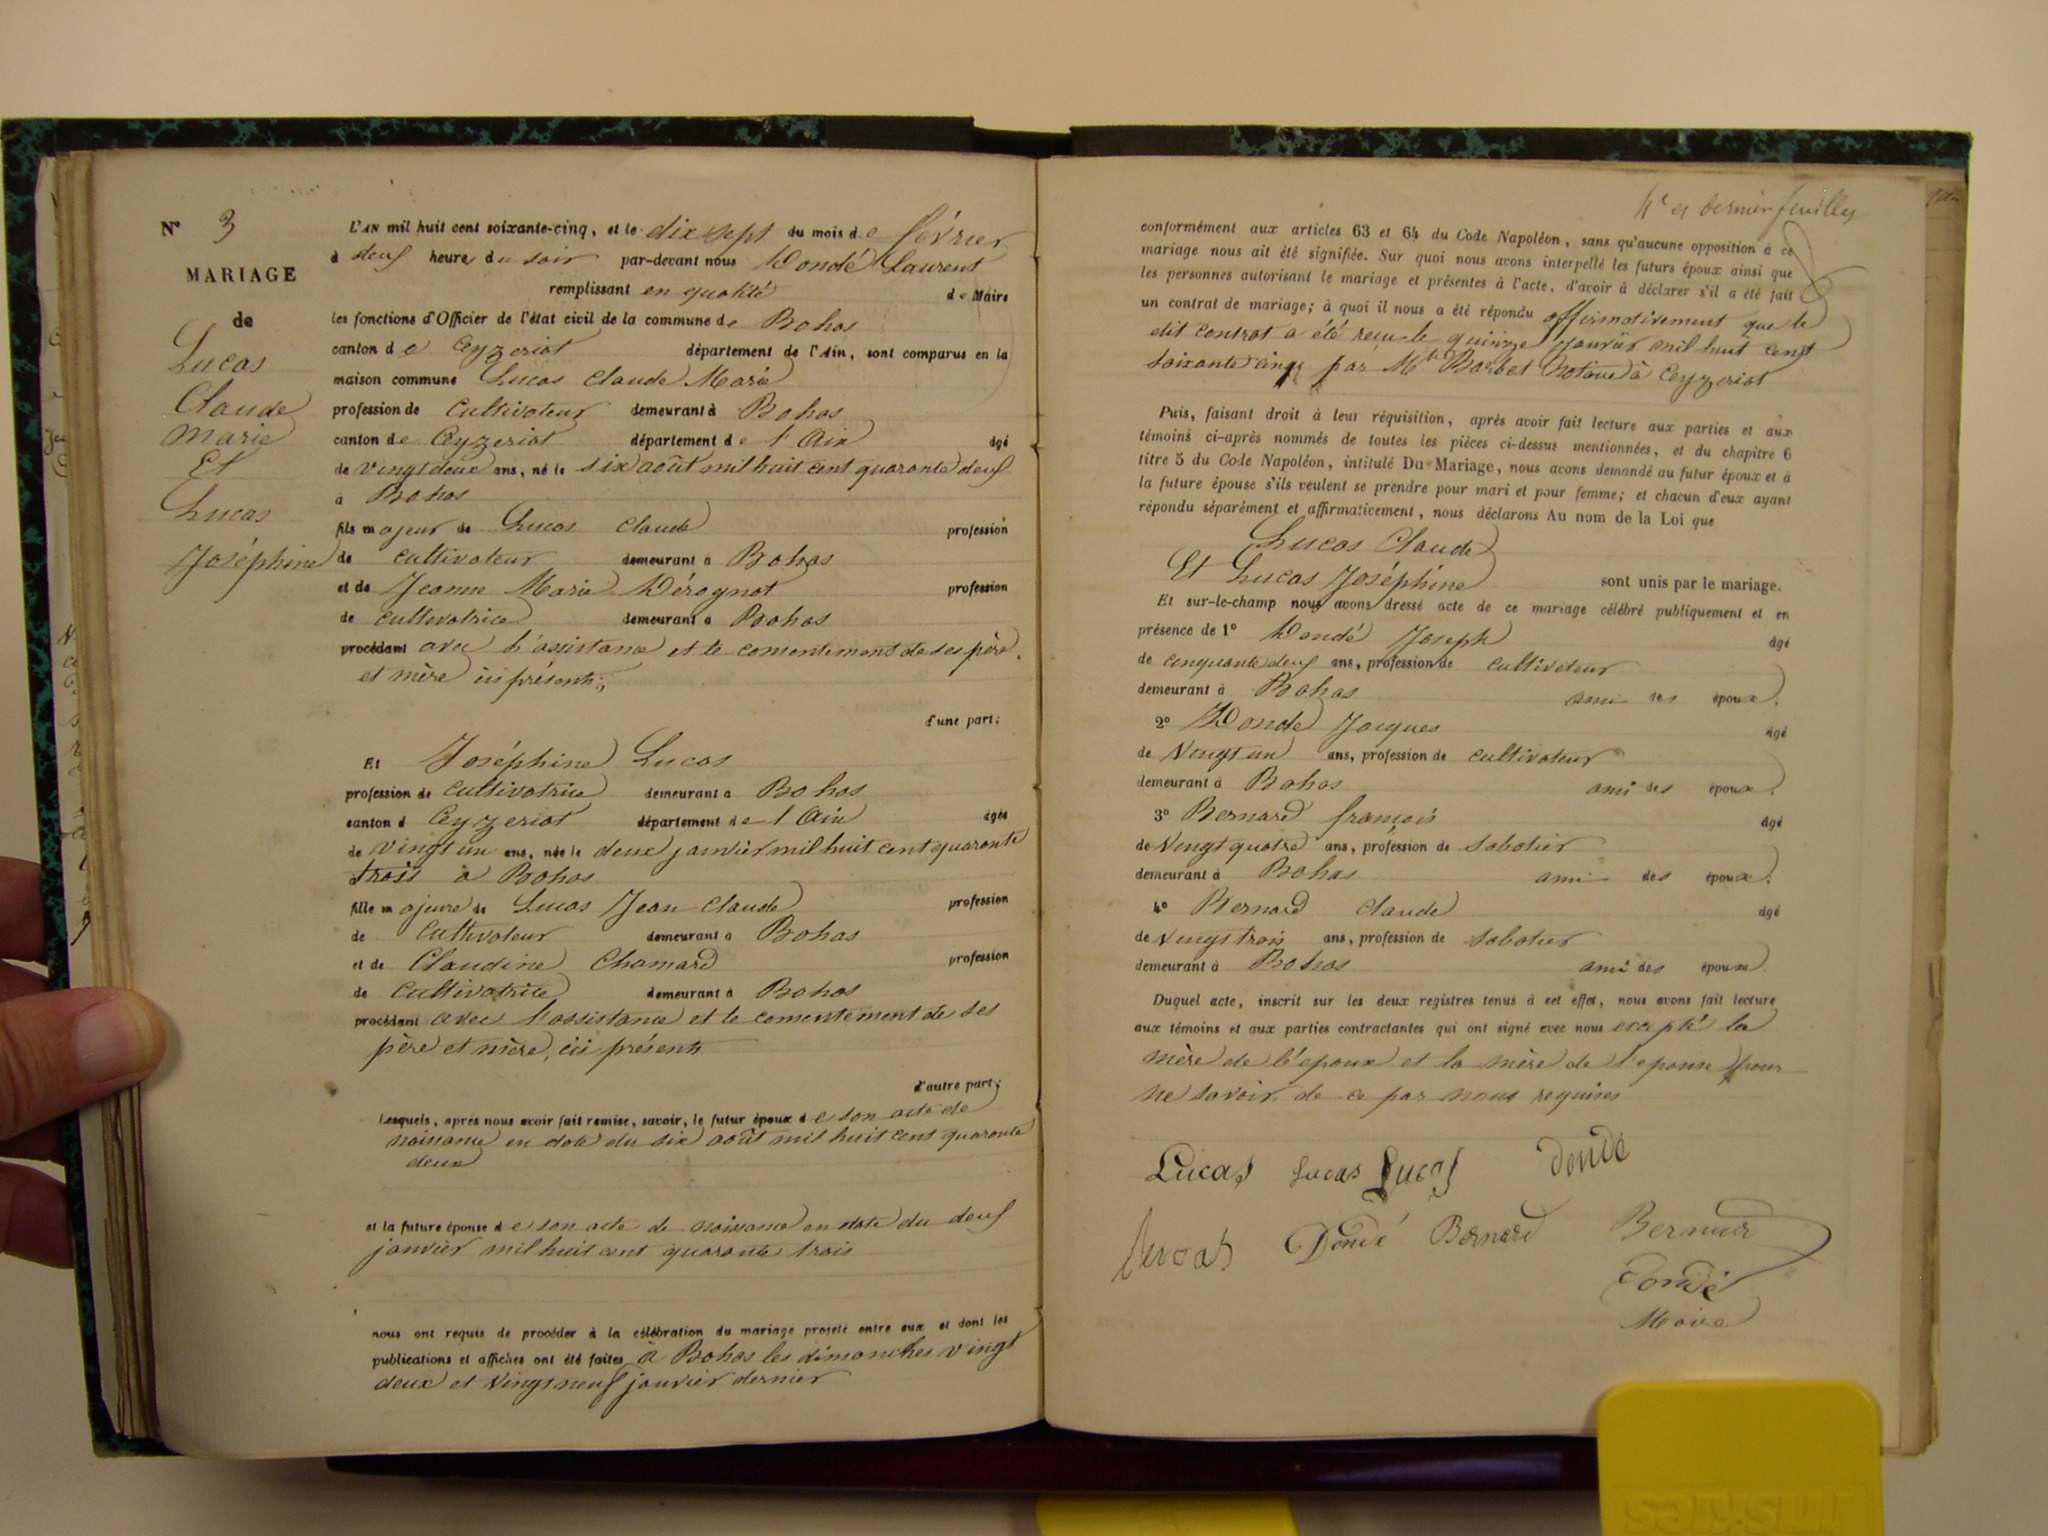 N° 3
MARIAGE
de
Lucas
Claude
Marie
Et
Lucas
Joséphine
L'AN mil huit cent soixante-cinq, et le dix sept du mois de février
à deux heures du soir par-devant nous Dondé Laurent
remplissant en qualité de Maire
les fonctions d'Officier de l'état civil de la commune de Bohas
canton de Ceyzeriat département de l'Ain, sont comparus en la
maison commune Lucas Claude Marie
profession de cultivateur demeurant à Bohas
canton de Ceyzeriat département de l'Ain âgé
de vingt deux ans, né le six août mil huit cent quarante deux
à Bohas
fils majeur de Lucas Claude profession
de cultivateur demeurant à Bohas
et de Jeanne Marie Dérognat profession
de cultivatrice demeurant à Bohas
procédant avec l'assistance et le consentement de ses père
et mère ici présents,
d'une part;
Et Joséphine Lucas
profession de cultivatrice demeurant à Bohas
canton d Ceyzeriat département de l'Ain âgée
de vingt un ans, née le deux janvier mil huit cent quarante
trois à Bohas
fille majeure de Lucas Jean Claude profession
de cultivateur demeurant à Bohas
et de Claudine Chamard profession
de cultivatrice demeurant à Bohas
procédant avec l'assistance et le consentement de ses
père et mère, ici présents
d'autre part;
Lesquels, après nous avoir fait remise, savoir, le futur époux de son acte de
naissance en date du six août mil huit cent quarante
deux
et la future épouse de son acte de naissance en date du deux
janvier mil huit cent quarante trois
nous ont requis de procéder à la célébration du mariage projeté entre eux et dont les
publications et affiches ont été faites à Bohas les dimanches vingt
deux et vingt neuf janvier dernier
4e et dernier feuillet
conformément aux articles 63 et 64 du Code Napoléon, sans qu'aucune opposition à ce
mariage nous ait été signifiée. Sur quoi nous avons interpellé les futurs époux ainsi que
les personnes autorisant le mariage et présentes à l'acte, d'avoir à déclarer s'il a été fait
un contrat de mariage; à quoi il nous a été répondu affirmativement que le
dit contrat a été reçu le quinze janvier mil huit cent
soixante cinq par Me Barbet Notaire à Ceyzeriat
Puis, faisant droit à leur réquisition, après avoir fait lecture aux parties et aux
témoins ci-après nommés de toutes les pièces ci-dessus mentionnées, et du chapitre 6
titre 5 du Code Napoléon, intitulé Du Mariage, nous avons demandé au futur époux et à
la future épouse s'ils veulent se prendre pour mari et pour femme; et chacun d'eux ayant
répondu séparément et affirmativement, nous déclarons Au nom de la Loi que
Lucas Claude
Et Lucas Joséphine sont unis par le mariage.
Et sur-le-champ nous avons dressé acte de ce mariage célébré publiquement et en
présence de 1° Dondé Joseph âgé
de cinquante deux ans, profession de cultivateur
demeurant à Bohas ami des époux.
2° Dondé Jacques âgé
de Vingt un ans, profession de cultivateur
demeurant à Bohas ami des époux.
3° Bernard françois âgé
de Vingt quatre ans, profession de sabotier
demeurant à Bohas ami des époux.
4° Bernard Claude âgé
de Vingt trois ans, profession de sabotier
demeurant à Bohas ami des époux
Duquel acte, inscrit sur les deux registres tenus à cet effet, nous avons fait lecture
aux témoins et aux parties contractantes qui ont signé avec nous excepté la
mère de l'époux et la mère de l'épouse pour
ne savoir de ce par nous requises
Lucas Lucas Lucas Dondé
Lucas Dondé Bernard Bernard
Dondé
Maire